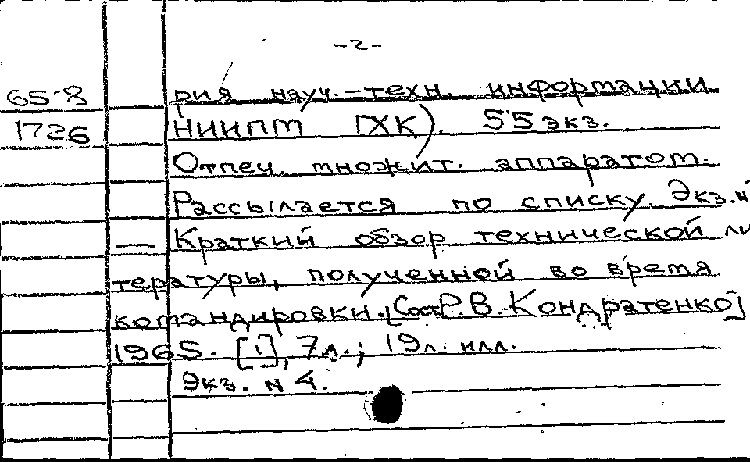 -2-
65-8 рия науч.-техн. информации
1726 НИИПМ ГХК). 55 экз.
Отпеч. множит. аппаратом.
Рассылается по списку. Экз. №
— Краткий обзор технической ли
тературы, полученной во время
командировки. [Сост. Р.В. Кондратенко]
1965. [1], 7л.; 19л. илл.
Экз. № 4.